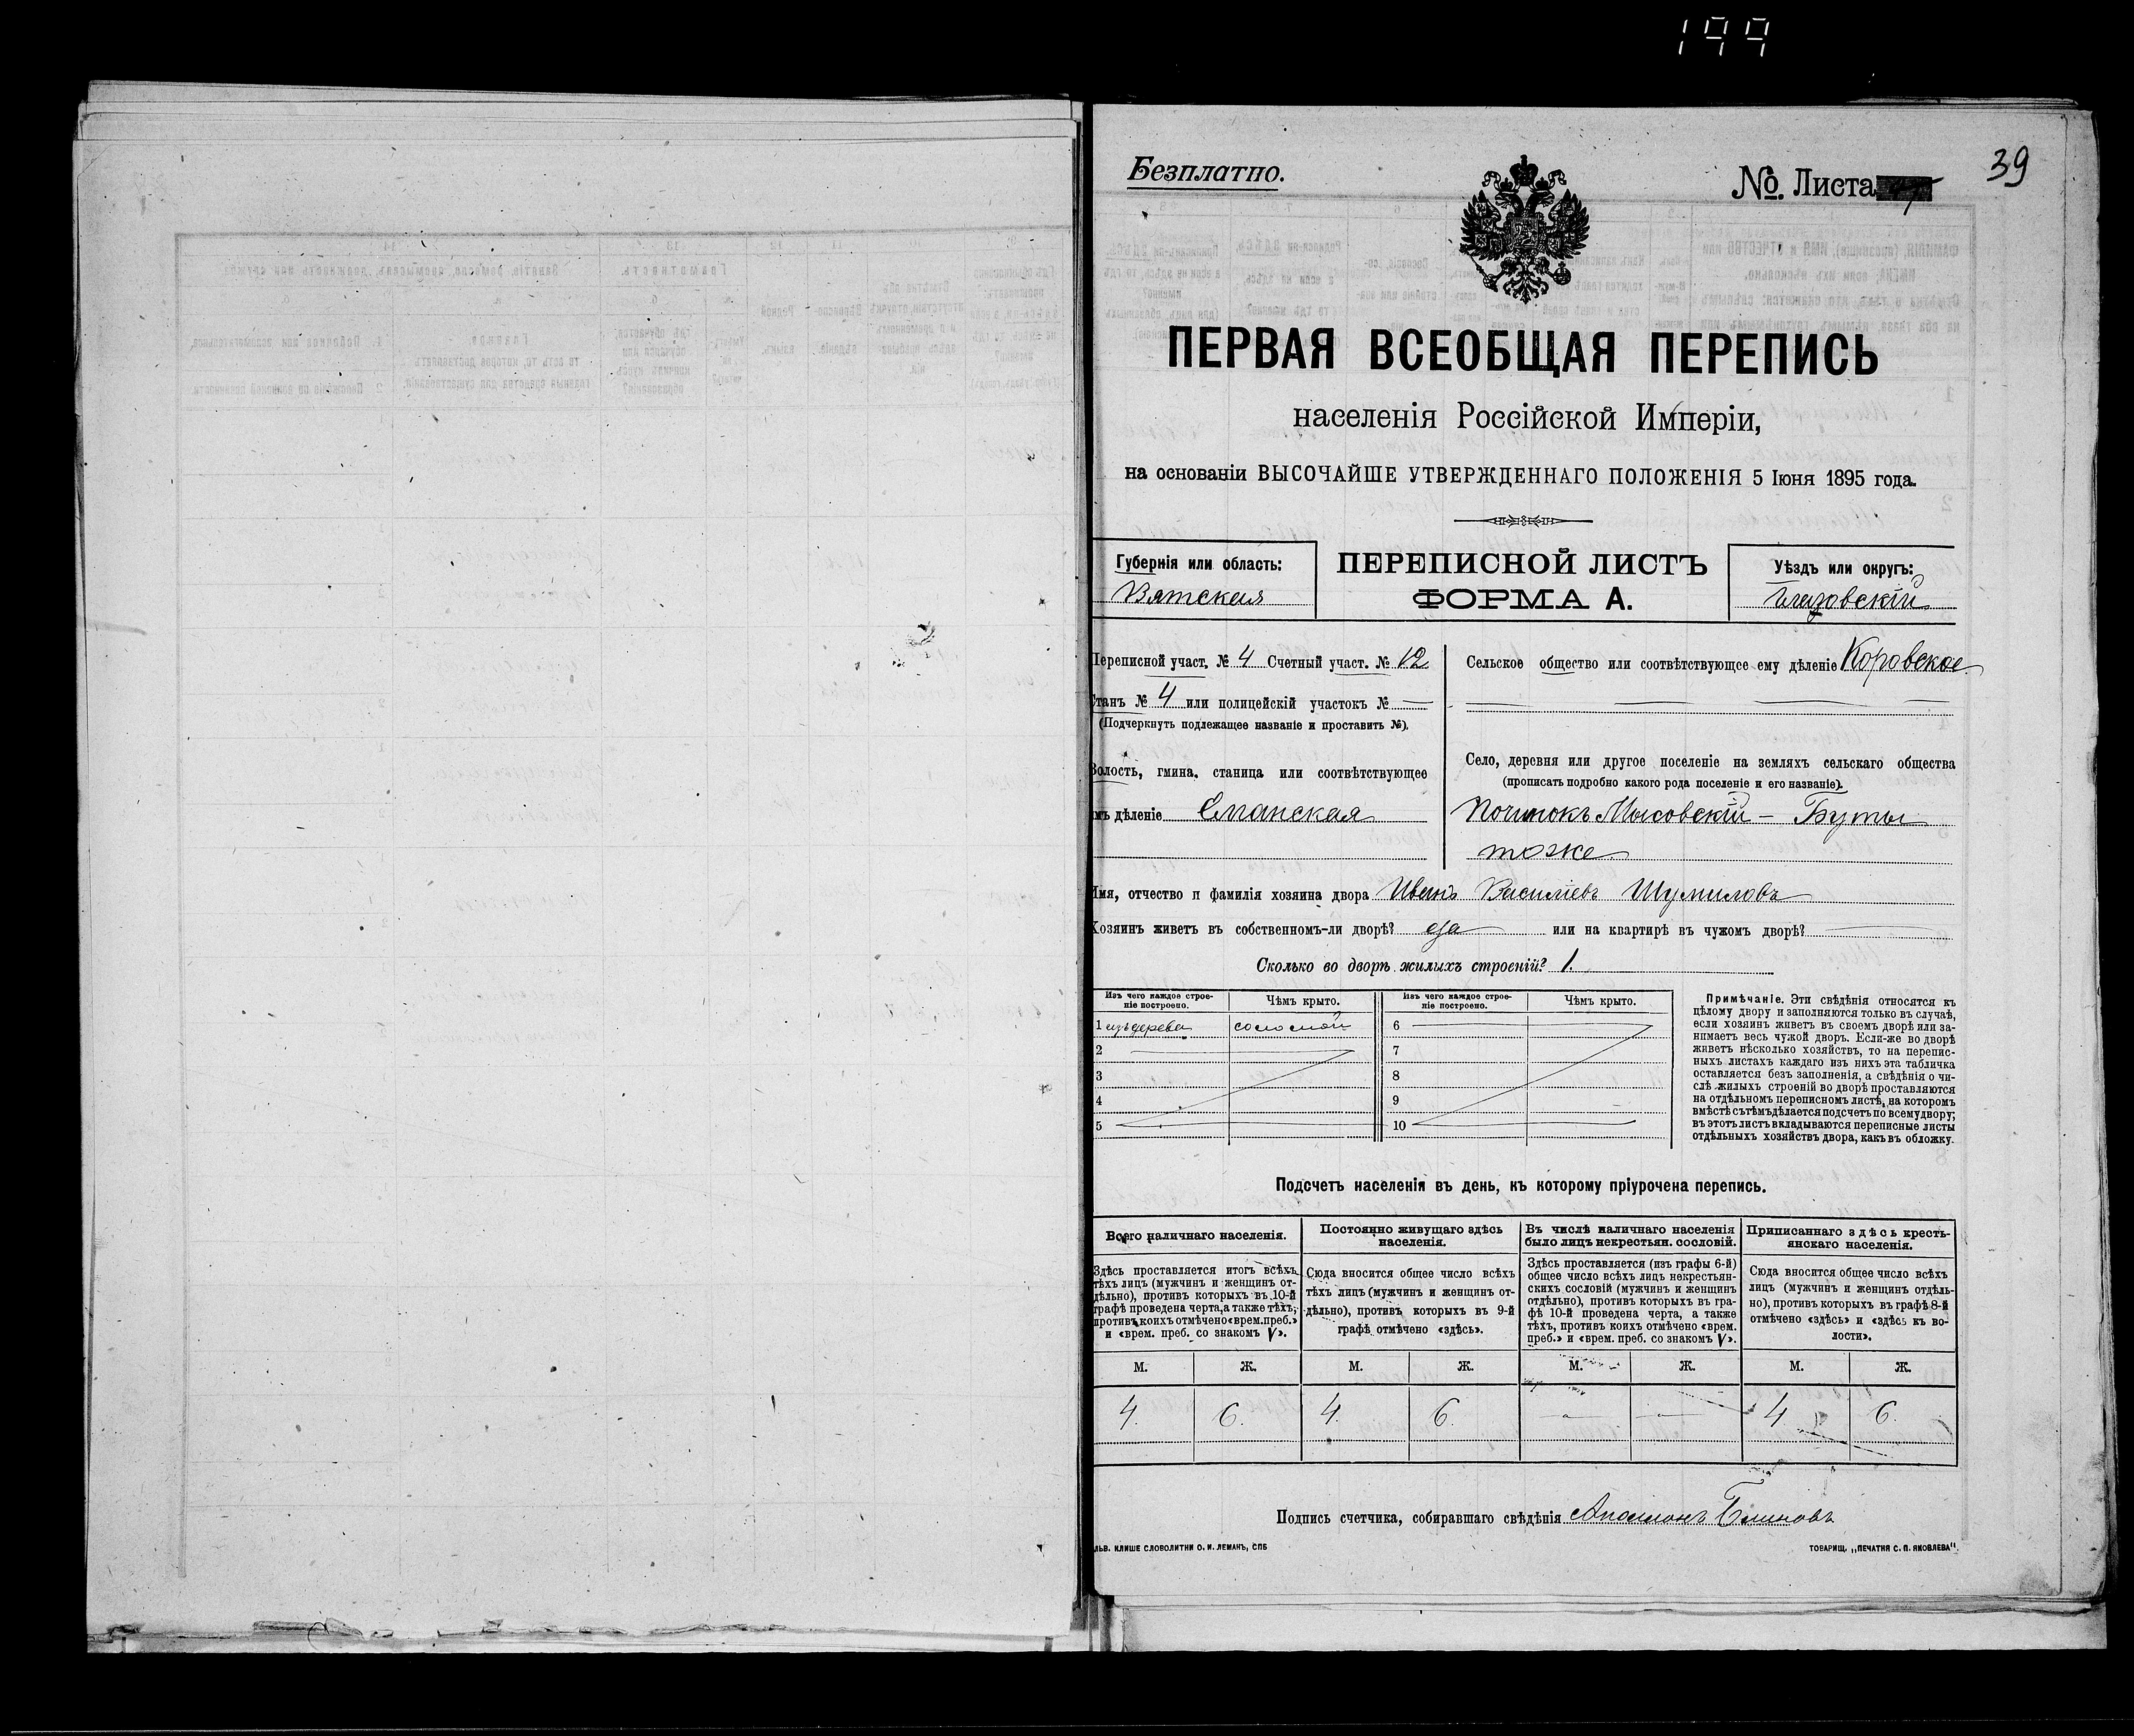 199
39
Безплатно.
№. Листа
ПЕРВАЯ ВСЕОБЩАЯ ПЕРЕПИСЬ
населенія Россійской Имперіи,
на основаніи ВЫСОЧАЙШЕ УТВЕРЖДЕННАГО ПОЛОЖЕНІЯ 5 Іюня 1895 года.
Губернія или область:
Вятская
ПЕРЕПИСНОЙ ЛИСТЪ
ФОРМА А.
Уѣздъ или округъ:
Глазовскій
Переписной участ. № 4 Счетный участ. № 12
Станъ № 4 или полицейскій участокъ № —
(Подчеркнуть подлежащее названіе и проставить №).
Волость, гмина, станица или соотвѣтствующее
имъ дѣленіе Елганская
Сельское общество или соотвѣтствующее ему дѣленіе Коровское
Село, деревня или другое поселеніе на земляхъ сельскаго общества
(прописать подробно какого рода поселеніе и его названіе).
Починокъ Мысовскій — Буты
тоже
Имя, отчество и фамилія хозяина двора Иванъ Васильевъ Шумиловъ
Хозяинъ живетъ въ собственномъ-ли дворѣ? да или на квартирѣ въ чужомъ дворѣ? —
Сколько во дворѣ жилыхъ строеній? 1.
Изъ чего каждое строе-
ніе построено.
Чѣмъ крыто.
Изъ чего каждое строе-
ніе построено.
Чѣмъ крыто.
1 изъ дерева соломой 6
2 7
3 8
4 9
5 10
Примѣчаніе. Эти свѣдѣнія относятся къ
цѣлому двору и заполняются только въ случаѣ,
если хозяинъ живетъ въ своемъ дворѣ или за-
нимаетъ весь чужой дворъ. Если-же во дворѣ
живетъ нѣсколько хозяйствъ, то на перепис-
ныхъ листахъ каждаго изъ нихъ эта табличка
оставляется безъ заполненія, а свѣдѣнія о чи-
слѣ жилыхъ строеній во дворѣ проставляются
на отдѣльномъ переписномъ листѣ, на которомъ
вмѣстѣ съ тѣмъ дѣлается подсчетъ по всему двору;
въ этотъ листъ вкладываются переписные листы
отдѣльныхъ хозяйствъ двора, какъ въ обложку.
Подсчетъ населенія въ день, къ которому пріурочена перепись.
Всего наличнаго населенія.
Здѣсь проставляется итогъ всѣхъ
тѣхъ лицъ (мужчинъ и женщинъ от-
дѣльно), противъ которыхъ въ 10-й
графѣ проведена черта, а также тѣхъ,
противъ коихъ отмѣчено «врем. преб.»
и «врем. преб. со знакомъ V».
Постоянно живущаго здѣсь
населенія.
Сюда вносится общее число всѣхъ
тѣхъ лицъ (мужчинъ и женщинъ от-
дѣльно), противъ которыхъ въ 9-й
графѣ отмѣчено «здѣсь».
Въ числѣ наличнаго населенія
было лицъ некрестьян. сословій.
Здѣсь проставляется (изъ графы 6-й)
общее число всѣхъ лицъ некрестьян-
скихъ сословій (мужчинъ и женщинъ
отдѣльно), противъ которыхъ въ гра-
фѣ 10-й проведена черта, а также
тѣхъ, противъ коихъ отмѣчено «врем.
преб.» и «врем. преб. со знакомъ V».
Приписаннаго здѣсь кресть-
янскаго населенія.
Сюда вносится общее число всѣхъ
лицъ (мужчинъ и женщинъ отдѣль-
но), противъ которыхъ въ графѣ 8-й
отмѣчено «здѣсь» и «здѣсь къ во-
лости».
М. Ж. М. Ж. М. Ж. М. Ж.
4. 6. 4. 6. — — 4 6.
Подпись счетчика, собиравшаго свѣдѣнія Аполлонъ Блиновъ
ЛЬВ. КЛИШЕ СЛОВОЛИТНИ О. И. ЛЕМАНЪ, СПБ
ТОВАРИЩ. „ПЕЧАТНЯ С. П. ЯКОВЛЕВА".